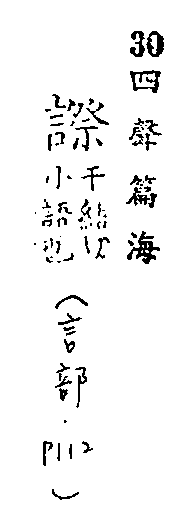 30 四聲篇海
千結切
小語也
(言部.P112)